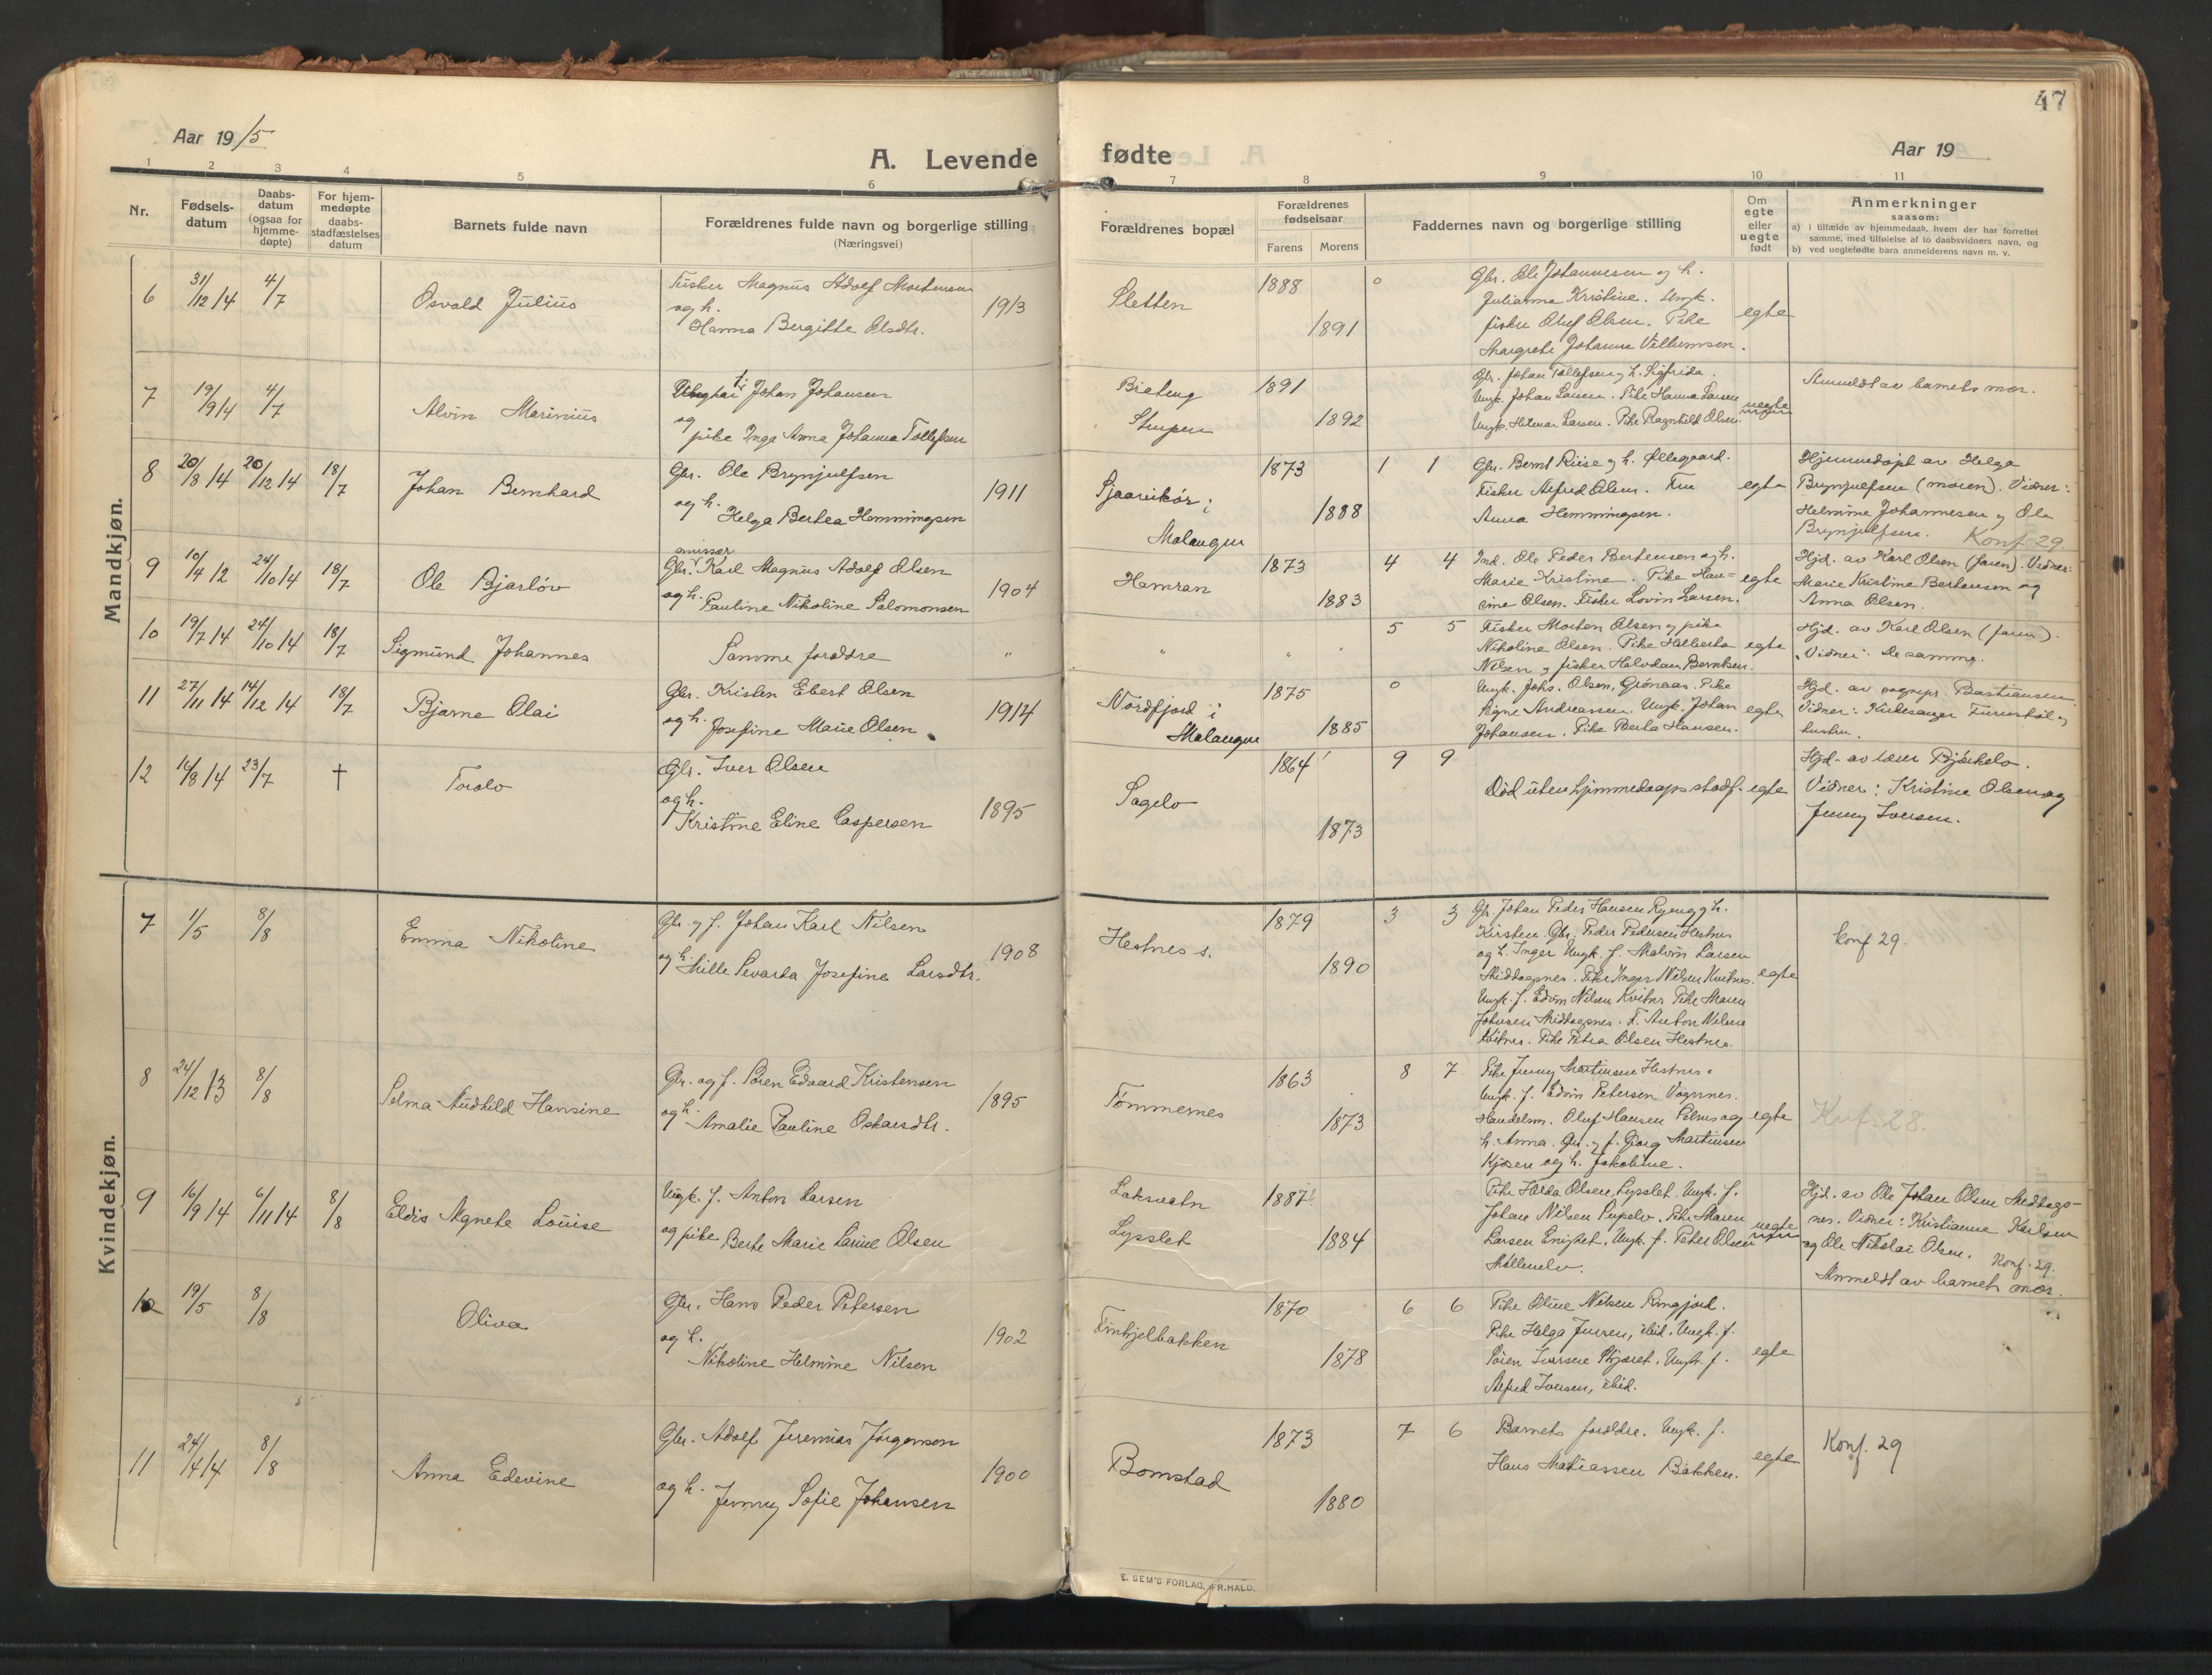 47
Aar 1915
A. Levende fødte
Aar 19
1 2 3 4 5 6 7 8 9 10 11
Nr.
Fødsels-
datum
Daabs-
datum
(ogsaa for
hjemme-
døpte)
For hjem-
medøpte
daabs-
stadfæstelses
datum
Barnets fulde navn
Forældrenes fulde navn og borgerlige stilling
(Næringsvei)
Forældrenes bopæl
Forældrenes
fødselsaar
Farens Morens
Faddernes navn og borgerlige stilling
Om
egte
eller
uegte
født
Anmerkninger
saasom:
a) i tilfælde av hjemmedaab, hvem der har forrettet
samme, med tilføielse af to daabsvidners navn, og
b) ved uegtefødte barn anmelderens navn m. v.
Mandkjøn.
6 31/12 14 4/7 Osvald Julius
Fisker Magnus Adolf Mortensen
og h.
Hanna Bergitte Olsdtr. 1913
Sletten 1888 1891 0
Gbr. Ole Johannesen og h.
Julianna Kristine. Ungk.
fisker Oluf Olsen. Pike
Margrete Johanne Vilhumsen.
egte
7 19/9 14 4/7 Alvin Marinius
Johan Johansen
og
pike Inga Anna Johanna Tollefsen
1891 1892
Gbr. Johan Tollefsen og h. Sigfrida.
Ungk. Johan Larsen. Pike Hanna Larsen
Ungk. Hilmar Larsen. Pike Ragnhild Olsen.
uegte
Anmeldt av barnets mor.
8 20/8 14 20/12 14 18/7 Johan Bernhard
Gbr. Ole Brynjulfsen
og h.
Helga Bertea Hemmingsen 1911
Malangen
1873 1888 1 1
Gbr. Bernt Riise og h. Øllegaard.
Fisker Alfred Olsen. Fru
Anna Hemmingsen.
egte
Hjemmedøpt av Helga
Brynjulfsen (moren). Vidner:
Helmine Johannesen og Ole
Brynjulfsen. Konf 29.
9 10/4 12 24/10 14 18/7 Ole Bjarlöv
Gbr. Karl Magnus Adolf Olsen
og h. Pauline Nikoline Salomonsen 1904
Hamran 1873 1883 4 4
Ind. Ole Peder Bertensen og h.
Marie Kristine. Pike Han=
cine Olsen. Fisker Lovin Larsen.
egte
Hjd. av Karl Olsen (faren). Vidner:
Marie Kristine Bertensen og
Anna Olsen.
10 19/7 14 24/10 14 18/7 Sigmund Johannes
Samme forældre "
" " " 5 5
Fisker Morten Olsen og pike
Nikoline Olsen. Pike Halberta
Nilsen og fisker Halvdan Berntsen.
egte
Hjd. av Karl Olsen (faren).
Vidner: De samme.
11 27/11 14 14/12 14 18/7 Bjarne Olai
Gbr. Kristen Ebert Olsen
og h. Josefine Marie Olsen. 1914
Nordfjord i
Malangen
1875 1885 0
Ungk. Johs. Olsen, Grönaas. Pike
Signe Andreassen. Ungk. Johan
Johansen. Pike Berta Hansen.
egte
Hjd. av sognepr. Bastiansen.
Vidner: Kirkesanger Furustöl og
hustru.
12 16/8 14 23/7 † Torolv
Gbr. Iver Olsen
og h.
Kristine Eline Caspersen 1895
Sagelv 1864 1873 9 9
Död uten hjemmedaapsstadf. egte
Hjd. av lærer Björkelv.
Vidner: Kristine Olsen og
Jenny Iversen.
Kvindekjøn.
7 1/5 8/8 Emma Nikoline
Gbr. og f. Johan Karl Nilsen
og h. Mille Sevarda Josefine Larsdtr. 1908
Hestnes s. 1879 1890 3 3
Gbr. Johan Peder Hansen Ryeng og h.
Kirsten. Gbr. Peder Pedersen Hestnes
og h. Inger. Ungk. f. Malvin Larsen
Middagsnes. Pike Inger Nilsen Kvitnes.
Ungk. f. Edvin Nilsen Kvitnes Pike Maren
Johnsen Middagsnes. F. Anton Nilsen
Kvitnes. Pike Petra Olsen Hestnes.
egte
konf 29.
8 24/12 13 8/8 Selma Audhild Hansine
Gbr. og f. Sören Edvard Kristensen
og h. Amalie Pauline Oskarsdtr. 1895
Tömmernes 1863 1873 8 7
Pike Jenny Martinsen Hestnes.
Ungk. f. Edvin Petersen Vognnes.
Handelsm. Oluf Hansen Selnes og
h. Anna. Gbr. og f. Georg Martinsen
Kjosen og h. Jakobine.
egte
Konf. 28.
9 16/9 14 6/11 14 8/8 Eldis Agnete Louise
Ungk. f. Anton Larsen
og pike Berte Marie Larine Olsen
Laksvatn
Lysslet
1887 1884
Pike Halda Olsen, Lysslet. Ungk. f.
Johan Nilsen. Pike Maren
Larsen Enighet. Ungk. f. Peter Olsen
Möllenelv.
uegte
Hjd. av Ole Johan Olsen Middags-
nes. Vidner: Kristianne Karlsen
og Ole Nikolai Olsen. Konf. 29.
Anmeldt av barnets mor.
10 19/5 8/8 Oliva
Gbr. Hans Peder Petersen
og h.
Nikoline Helmine Nilsen 1902
Finhjelbakken 1870 1878 6 6
Pike Oline Nilsen.
Pike Helga Jensen, ibid. Ungk. f.
Sören Iversen. Ungk. f.
Alfred Iversen, ibid.
egte
11 24/4 14 8/8 Anna Edevine
Gbr. Adolf Jeremias Jörgensen
og h. Jenny Sofie Johansen 1900
Bomstad 1873 1880 7 6
Barnets forældre. Ungk. f.
Hans Matiassen Bakken.
egte
Konf. 29
E. SEM'S FORLAG, FR.HALD.